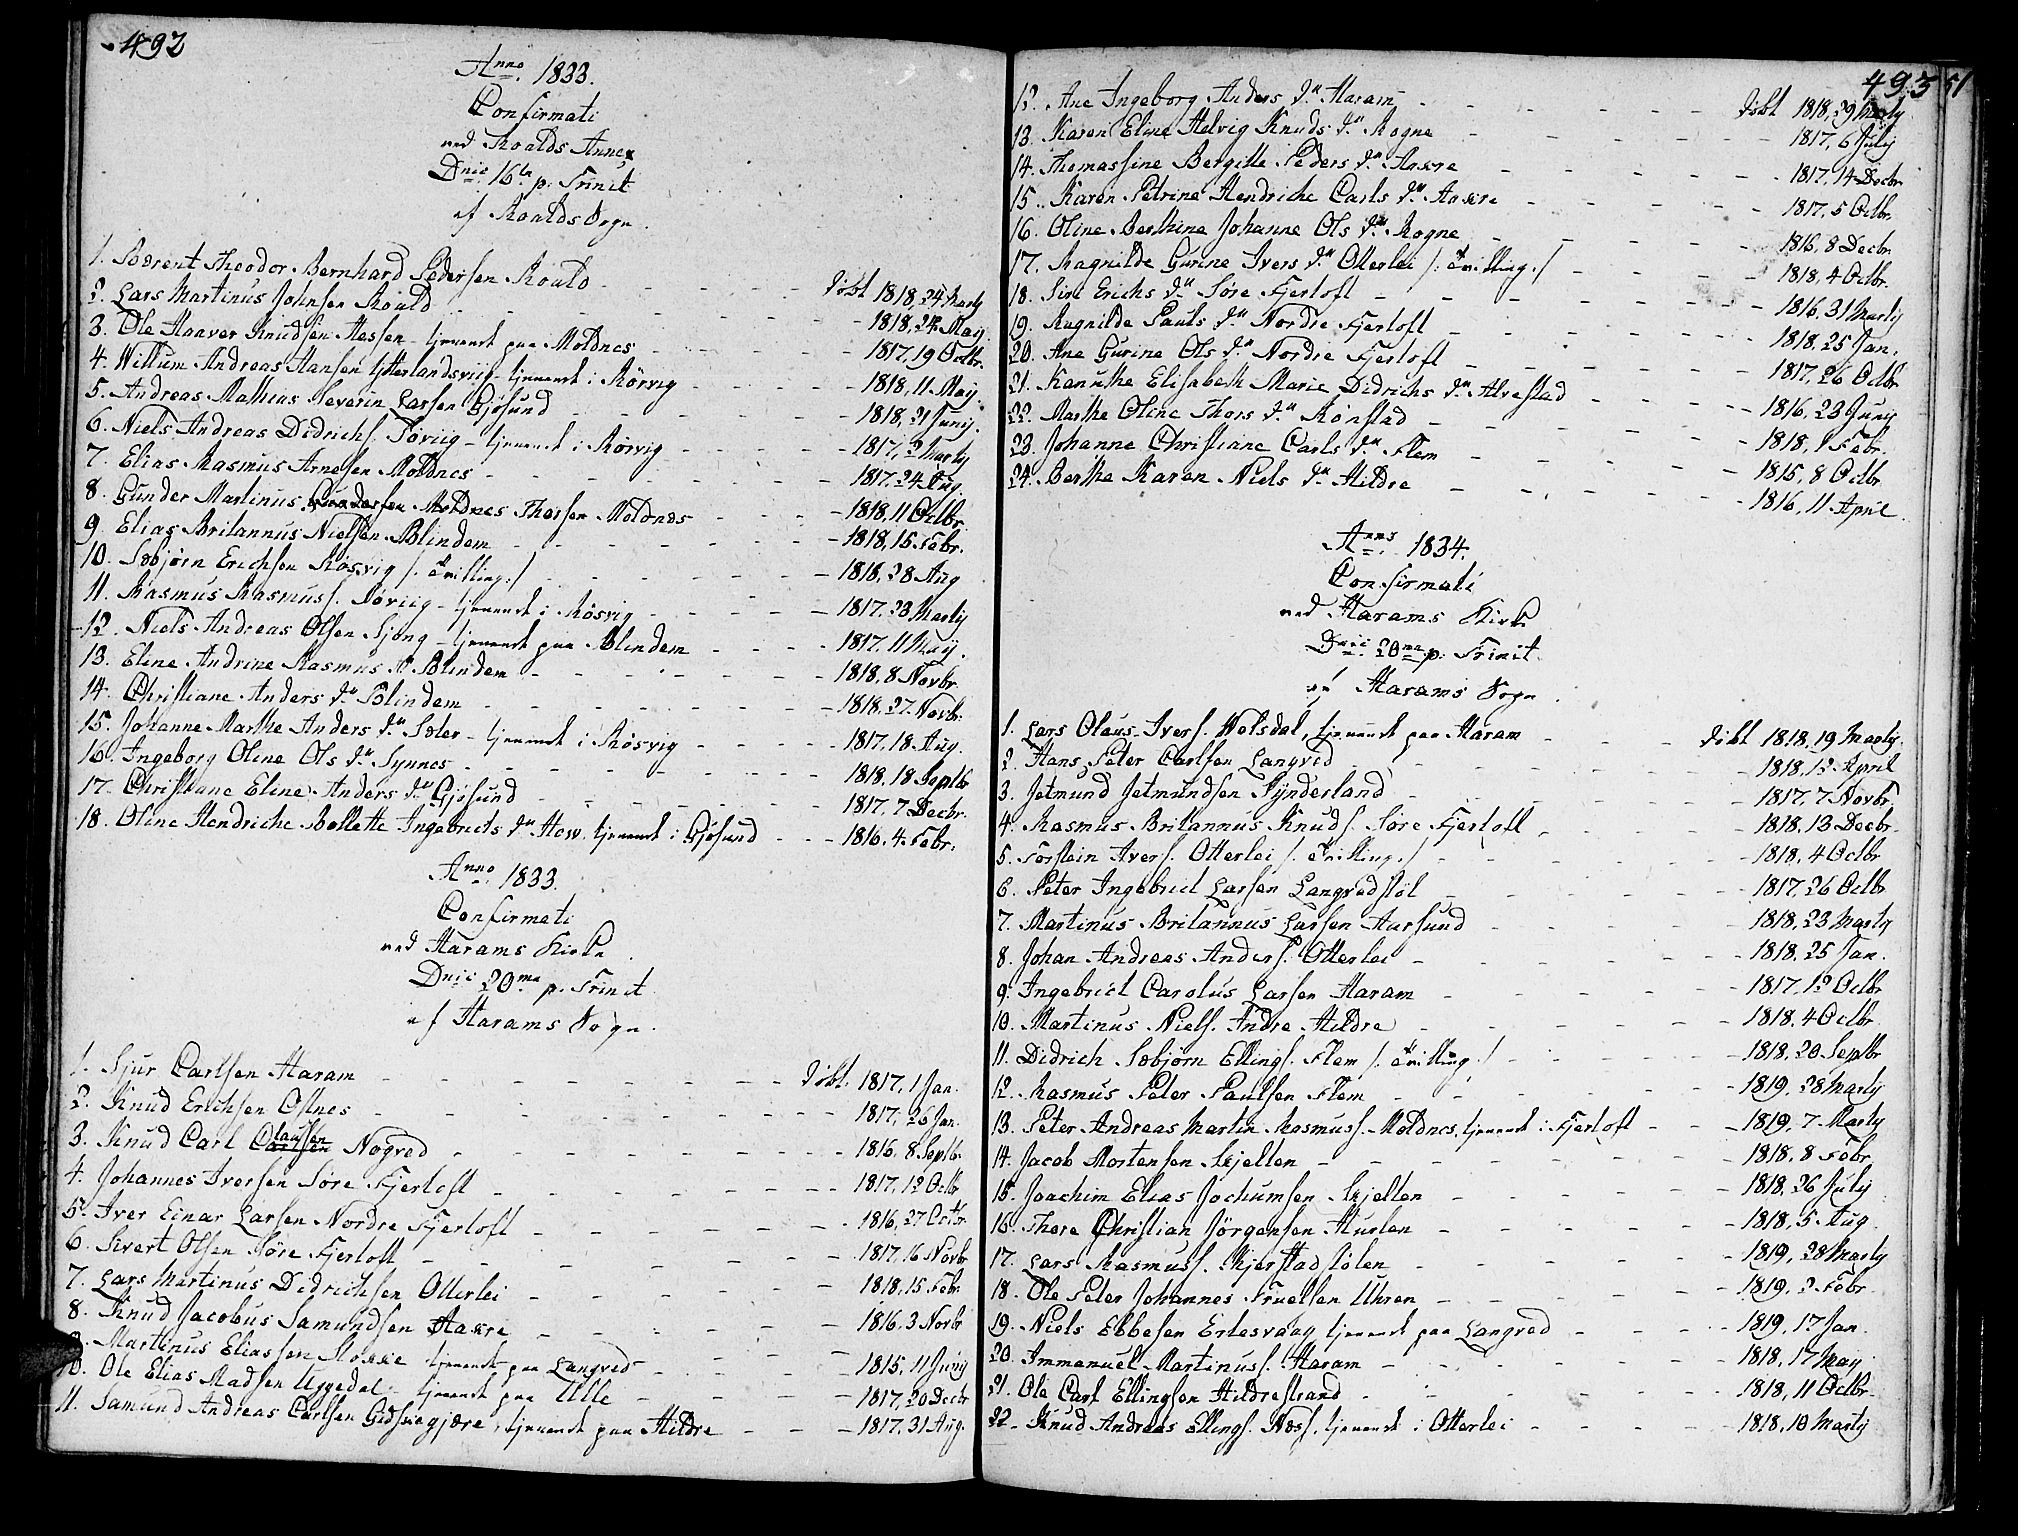 492
Anno 1833.
Confirmati
ved Roalds Annex
Dnic 16de p. Trinit
af Roalds Sogn.
1. Bærent Theodor Bernhard Pedersen Roald - - - døbt 1818, 24 Marty
2. Lars Martinus Johnsen Roald - - - 1818, 24 Maij
3. Ole Haaver Knudsen Hessen - tjenende paa Moldnes - - - 1817, 19 Octbr.
4. Willum Andreas Hansen - tjenende i Rörvig - - - 1818, 11 Maij.
5. Andreas Mathias Severin Larsen Gjösund - - - 1818, 21 Junij.
6. Niels Andreas Didrichs. Töviig - tjenende i Rörvig - - - 1817, 2 Marty
7. Elias Rasmus Arnesen Moldnes - - - 1817, 24 Aug.
8. Gunder Martinus Moldnes Thorsen Moldnes - - - 1818, 11 Octbr.
9. Elias Britannus Nielsen Blindem - - - 1818, 15 Febr.
10. Sæbjörn Erichsen Rösvig /: Tvilling :/ - - - 1818, 28 Aug
11. Rasmus Rasmuss. Töviig - tjenende i Rösvig - - - 1817, 23 Marty
12. Niels Andreas Olsen Sjong - tjenende paa Blindem - - - 1817, 11 Maij.
13. Eline Andrine Rasmus dr Blindem - - - 1818, 8 Novbr.
14. Christiane Anders dr Blindem - - - 1818, 27 Novbr.
15. Johanne Marthe Anders dr Sæter - tjenende i Rösvig - - - 1817, 18 Aug.
16. Ingeborg Oline Ols dr Synnes - - - 1818, 18 Septbr
17. Christiane Eline Anders dr Gjösund - - - 1817, 7 Decbr.
18. Oline Hendriche Bollette Ingebricts dr How, tjenende i Gjösund - - - 1816, 4 Febr.
Anno 1833.
Confirmati
ved Harams Kirke
Dnic 20ma p. Trinit
af Harams Sogn.
1. Sjur Carlsen Haram - - - døbt. 1817, 1 Jan.
2. Knud Erichsen Ostnes - - - 1817, 26 Jan.
3. Knud Carl Claussen Nogved - - - 1816, 8 Septbr.
4. Johannes Iversen Söre Fjertoft - - - 1817, 12 Octbr
5. Iver Einar Larsen Nordre Fjertoft - - - 1816, 27 Octbr.
6. Sivert Olsen Söre Fjertoft - - - 1817, 16 Novbr
7. Lars Martinus Didrichsen Otterlei - - - 1818, 15 Febr.
8. Knud Jacobus Samundsen Aakre - - - 1816, 3 Novbr
9. Martinus Eliassen tjenende paa Langved - - - 1815, 11 Junij
10. Ole Elias Madsen Uggedal - tjenende paa Ulle - - - 1817, 20 Decbr
11. Samund Andreas Carlsen Gidskegjære, tjenende paa Hildre - - - 1817, 31 Aug.
493
51
12. Ane Ingeborg Anders dr Haram - - - døbt 1818, 29 Marty
13. Karen Eline Helvig Knuds dr Rogne - - - 1817, 6 Julij
14. Thomassine Bergitte Peders dr Aakre - - - 1817, 14 Decbr
15. Karen Petrine Hendriche Carls dr Aakre - - - 1817, 5 Octbr.
16. Oline Berthine Johanne Ols dr Rogne - - - 1816, 8 Decbr.
17. Ragnilde Gurine Ivers dr Otterlei /: Tvilling :/ - - - 1818, 4 Octbr.
18. Siri Erichs dr Söre Fjertoft - - - 1816, 31 Marty
19. Ragnilde Pauls dr Nordre Fjertoft - - - 1818, 25 Jan.
20. Ane Gurine Ols dr Nordre Fjertoft - - - 1817, 26 Octbr
21. Kanuthe Elisabeth Marie Didrichs dr Alvestad - - - 1816, 23 Junij
22. Marthe Oline Thors dr Rönstad - - - 1818, 1 Febr.
23. Johanne Christiane Carls dr Flem - - - 1815, 8 Octbr
24. Berthe Karen Niels dr Hildre - - - 1816, 11 April.
Anno 1834.
Confirmati
ved Harams Kirke
Dnic 20ma p. Trinit.
af Harams Sogn.
1. Lars Olaus Ivers. Wolsdal, tjenende paa Haram - - - døbt 1818, 19 Marty.
2. Hans Peter Carlsen Langved - - - 1818, 12 April
3. Jetmund Jetmundsen Synderland - - - 1817, 7 Novbr.
4. Rasmus Britannus Knuds. Söre Fjertoft - - - 1818, 13 Decbr.
5. Torstein Ivers. Otterlei /: Tvilling :/ - - - 1818, 4 Octbr
6. Peter Ingebrict Larsen Langvedstöl - - - 1817, 26 Octbr
7. Martinus Britannus Larsen Aursund - - - 1818, 23 Marty
8. Johan Andreas Anders. Otterlei - - - 1818, 25 Jan.
9. Ingebrict Carolus Larsen Haram - - - 1817, 12 Octbr
10. Martinus Niels. Indre Hildre - - - 1818, 4 Octbr.
11. Didrich Sæbjörn Ellings. Flem /: Tvilling :/ - - - 1818, 20 Septbr
12. Rasmus Peter Paulsen Flem - - - 1819, 28 Marty
13. Peter Andreas Martin Rasmuss. Moldnes, tjenende i Fjertoft - - - 1819, 7 Marty
14. Jacob Mortensen Skjelten - - - 1818, 8 Febr
15. Joachim Elias Jochumsen Skjelten - - - 1818, 26 Julij
16. Thore Christian Jörgensen Hurlen - - - 1818, 5 Aug.
17. Lars Rasmuss. Kjerstadstölen - - - 1819, 28 Marty
18. Ole Peter Johannes Truelsen Uhren - - - 1819, 2 Febr
19. Niels Ebbesen Ertesvaag tjenende paa Langved - - - 1819, 17 Jan
20. Immanuel Martinuss. Haram - - - 1818, 17 Maij
21. Ole Carl Ellingsen Hildrestrand - - - 1818, 11 Octbr.
22. Knud Andreas Ellings. Næss, tjenende i Otterlei - - - 1818, 10 Marty